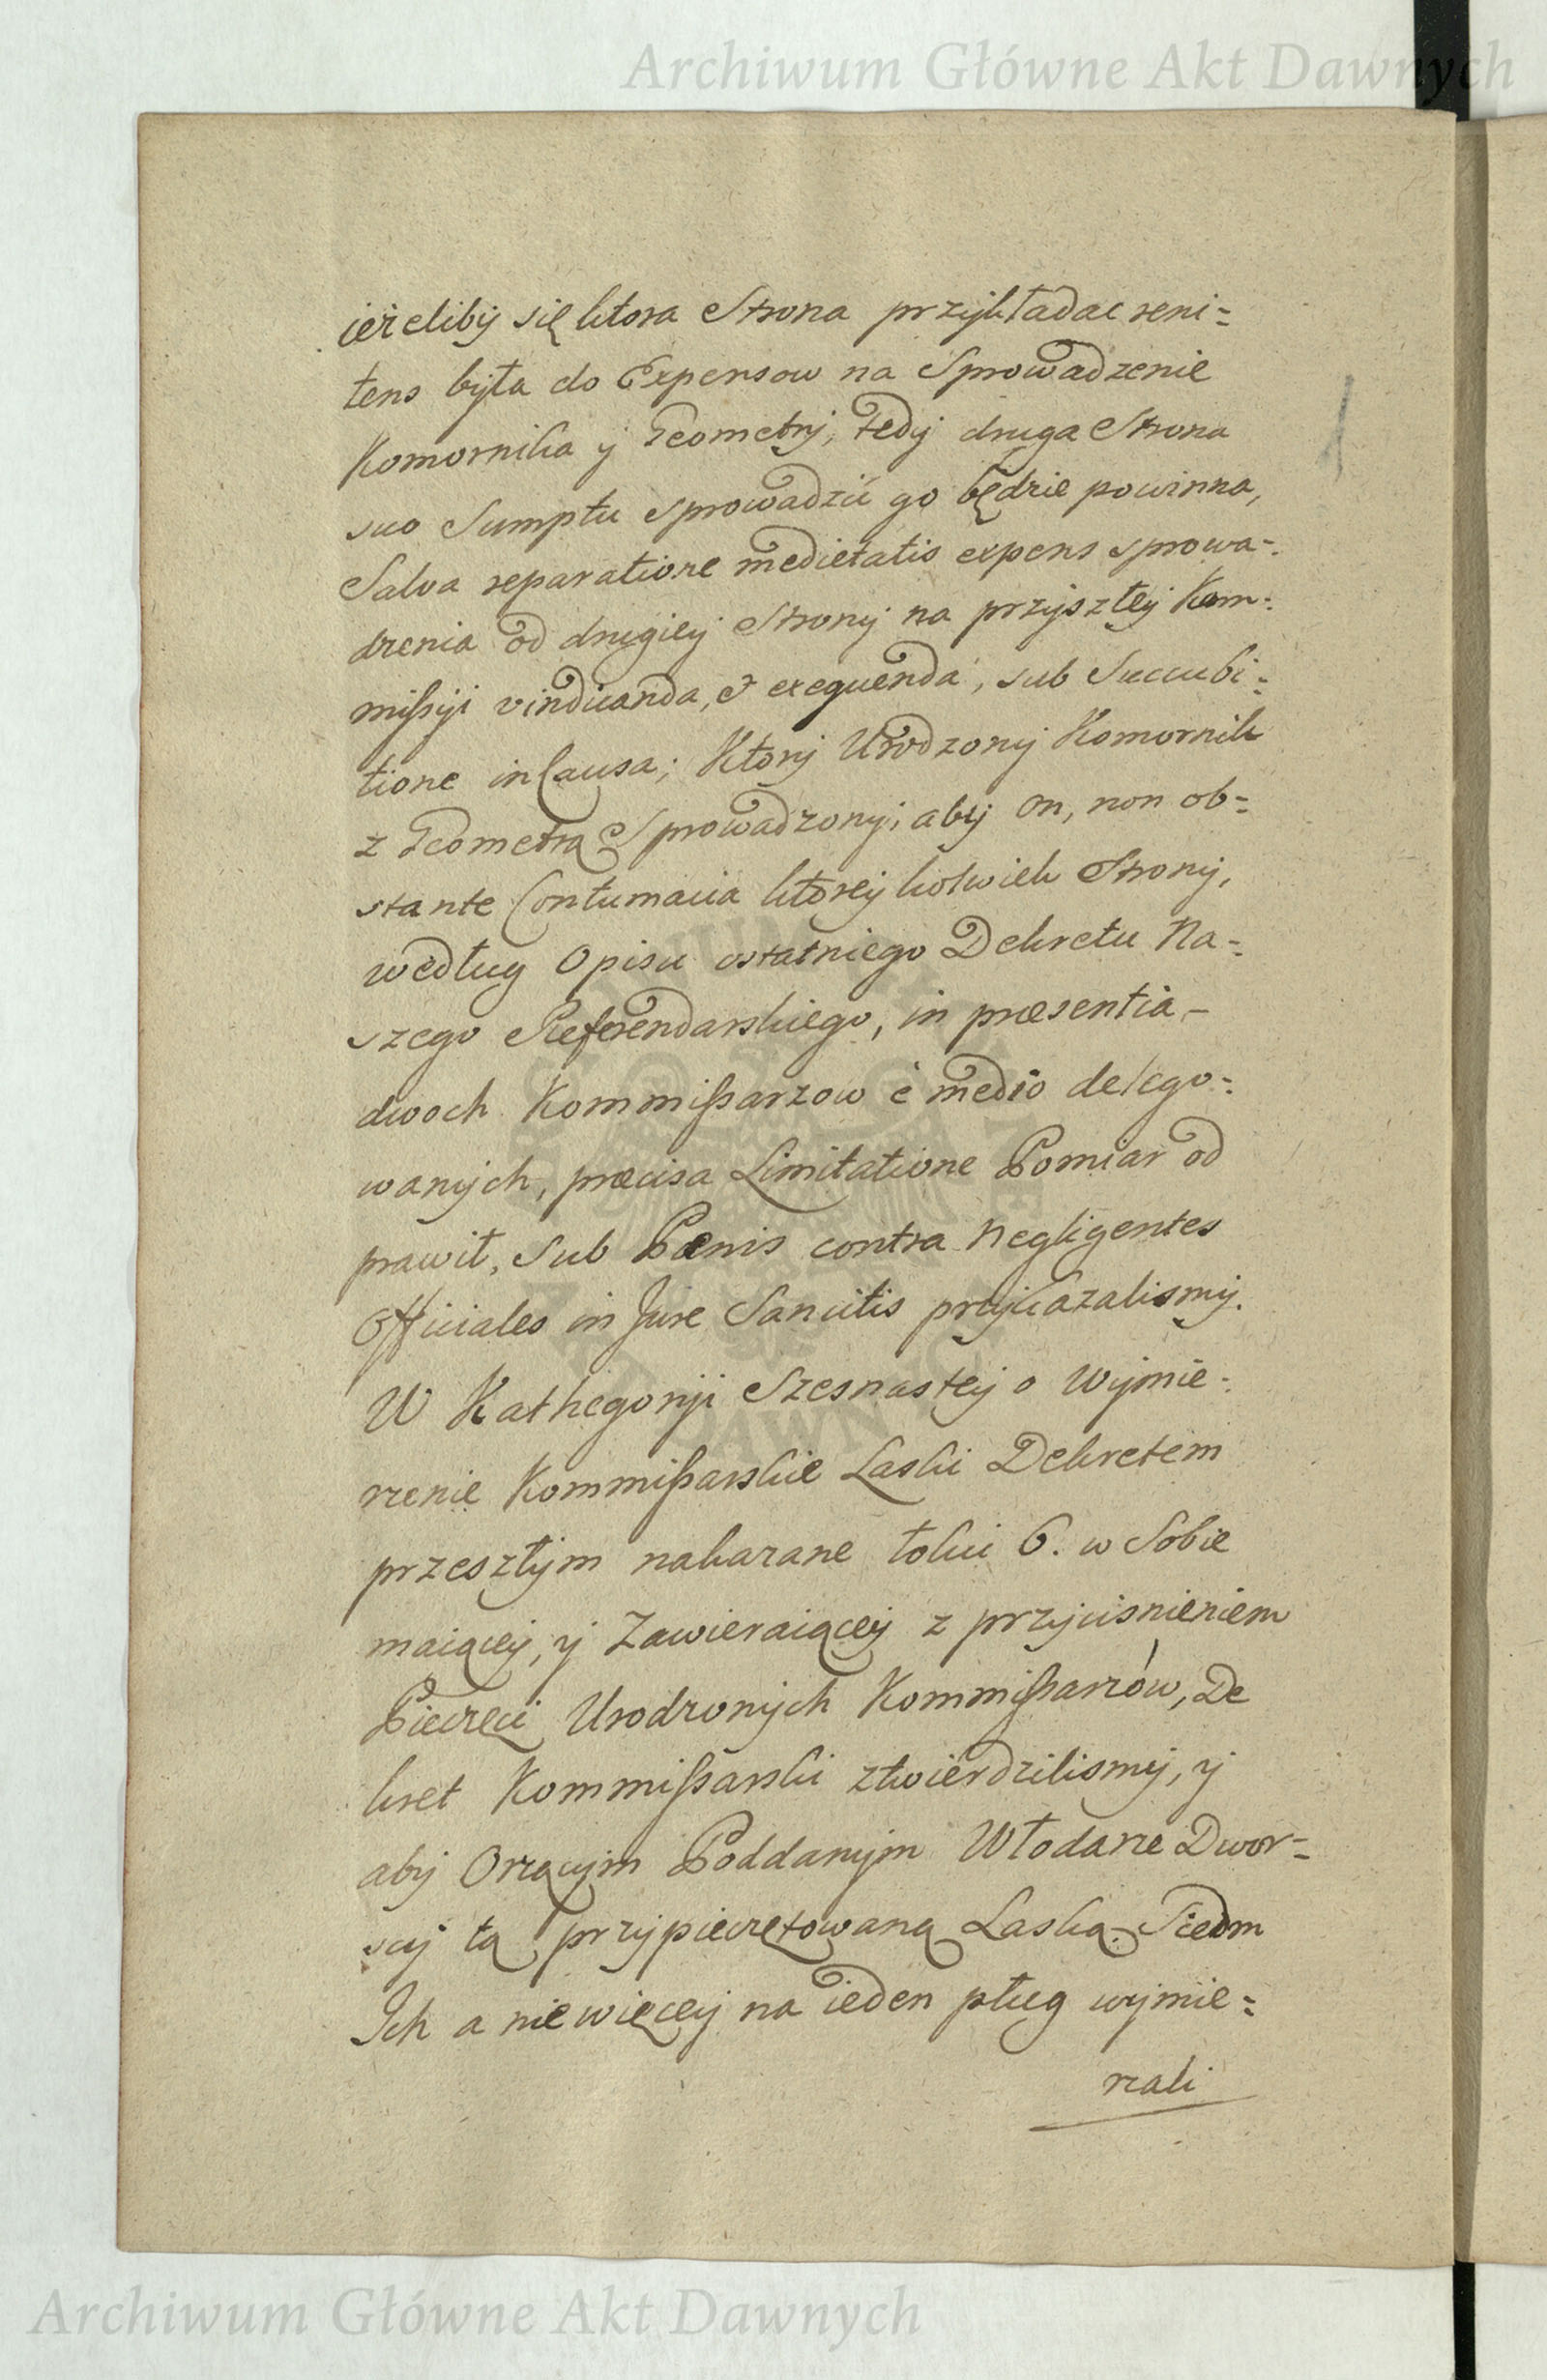 Archiwum Główne Akt Dawnych
ieżeliby się ktora Strona przykładac reni=
tens była do Expensow na Sprowadzenie
Komornika y Geometry, tedy druga Strona
suo Sumptu sprowadzić go będzie powinna,
Salva reparatione medietatis expens sprowa=
dzenia od drugiey Strony na przyszłey Kom=
missyi vindicanda, & exequenda, sub Succubi=
tione in Causa; Ktory Urodzony Komornik
z Geometrą Sprowadzony, aby on, non ob=
stante Contumacia ktoreykolwiek Strony,
według Opisu ostatniego Dekretu Na=
szego Referendarskiego, in præsentia
dwoch Kommissarzow è medio delego=
wanych, præcisa Limitatione Pomiar od
prawił, Sub Pænis contra Negligentes
Officiales in Jure Sancitis przykazalismy.
W Kathegoryi Szesnastey o Wymie=
rzenie Kommissarskie Laski Dekretem
przeszłym nakazane łokci 6. w Sobie
maiącey, y Zawieraiącey z przyciśnieniem
Pieczęci Urodzonych Kommissarzów, De
kret Kommissarski ztwierdzilismy, y
aby Orzącym Poddanym Włodarze Dwor=
scy tą przypieczętowaną Laską Siedm
Ich a nie więcey na ieden pług wymie=
rzali
Archiwum Główne Akt Dawnych